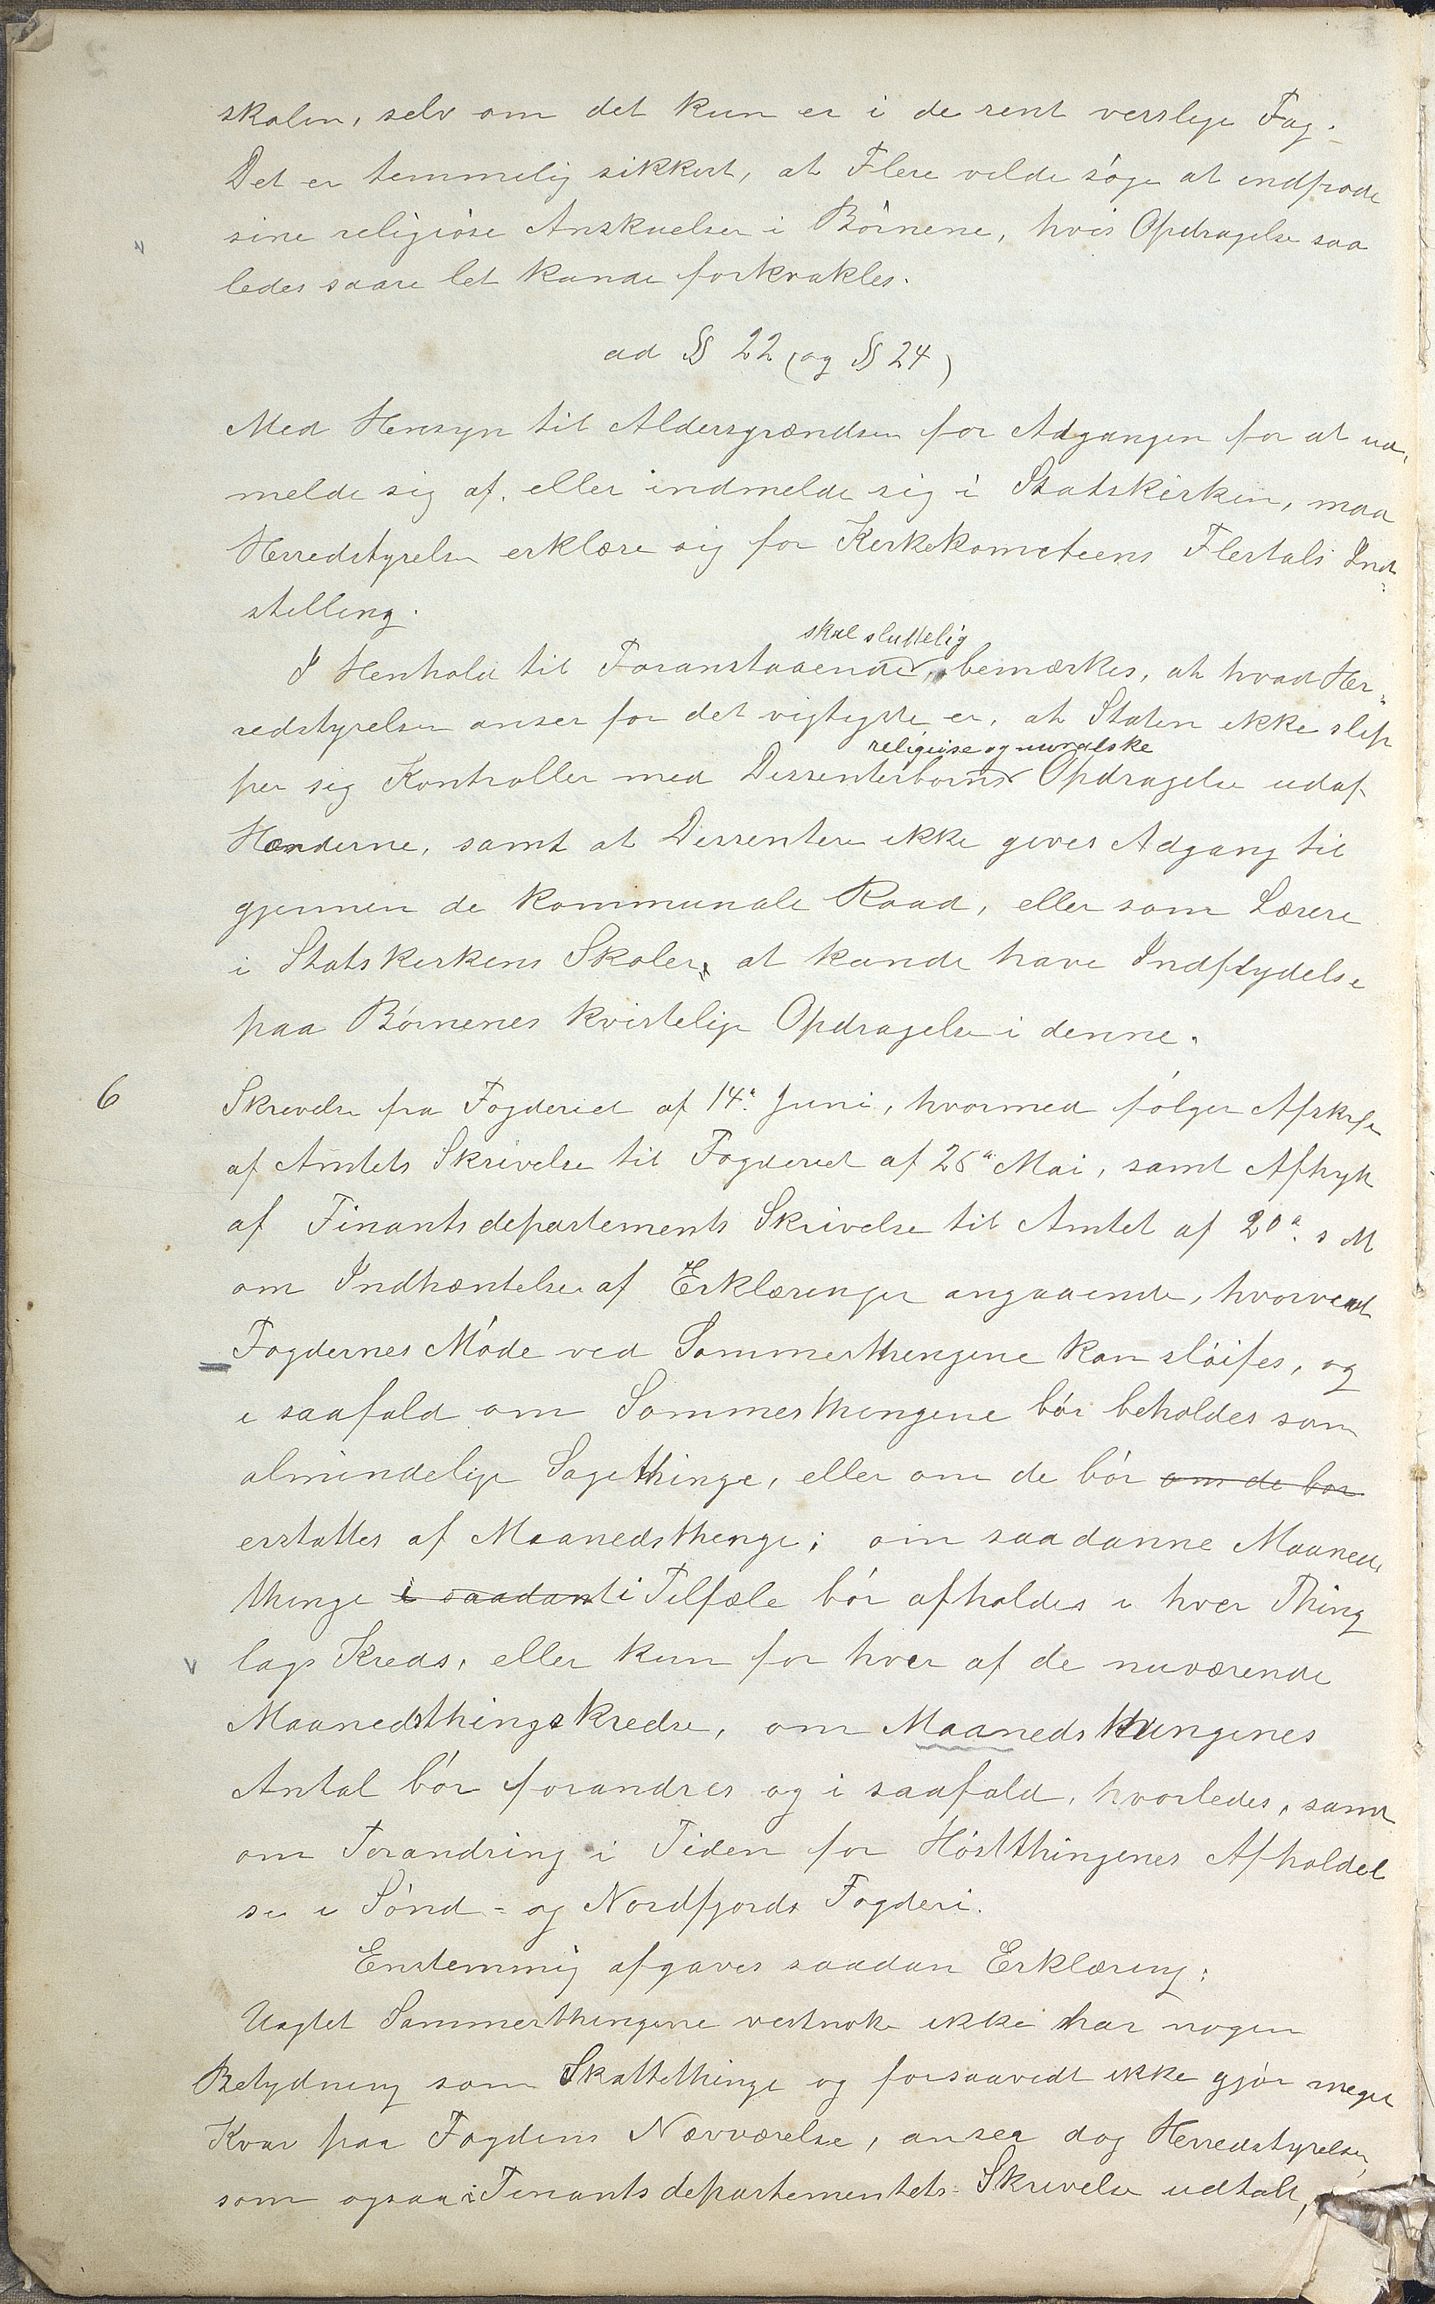 skolen, selv om det kun er i de rent verslige Fag.
Det er temmelig sikkert, at Flere vilde söge at indpode
sine religiöse Anskuelser i Börnene, hvis Opdragelse saa
ledes saare let kunde forkvakles.
ad § 22 (og § 24)
Med Hensyn til Aldersgrændsen for Adgangen for at ud,
melde sig af, eller indmelde sig i Statskirken, maa
Herredstyrelsen erklære sig for Kirkekomiteens Flertals Ind=
stilling.
skal sluttelig
I Henhold til Foranstaaende, bemærkes, at hvad Her=
redstyrelsen anser for det vigtigste er, at Staten ikke slip
religiøse og moralske
per sig Kontrollen med Dissenterbørns Opdragelse udaf
Hænderne, samt at Dissentere ikke gives Adgang til
gjennem de kommunale Raad, eller som Lærere
i Statskirkens Skoler, at kunde have Indflydelse
paa Börnenes kristelige Opdragelse i denne.
6 Skrivelse fra Fogderiet af 14de Juni, hvormed fölger Afskrift
af Amtets Skrivelse til Fogderiet af 26de Mai, samt Aftryk
af Finantsdepartements Skrivelse til Amtet af 20de s M
om Indhæntelse af Erklæringer angaaende, hvorvidt
Fogdernes Möde ved Sommerthingene kan slöifes, og
i saafald om Sommerthingene bör beholdes som
almindelige Sagethinge, eller om de bör om de bør
erstattes af Maanedsthinge; om saadanne Maaneds
thinge i saadant i Tilfæle bör afholdes i hver Thing
lags Kreds, eller kun for hver af de nuværende
Maanedsthingskredse, om Maanedsthingenes
Antal bör forandres og i saafald, hvorledes, samt
om Forandring i Tiden for Höstthingenes Afholdel
se i Sönd- og Nordfjords Fogderi.
Enstemmig afgaves saadan Erklæring:
Uagtet Sommerthingene vestnok ikke har nogen
Betydning som Skattethinge og forsaavidt ikke gjör meget
Krav paa Fogdens Nærværelse, anser dog Herredstyrelsen,
som ogsaa i Finantsdepartementets Skrivelse udtalt,